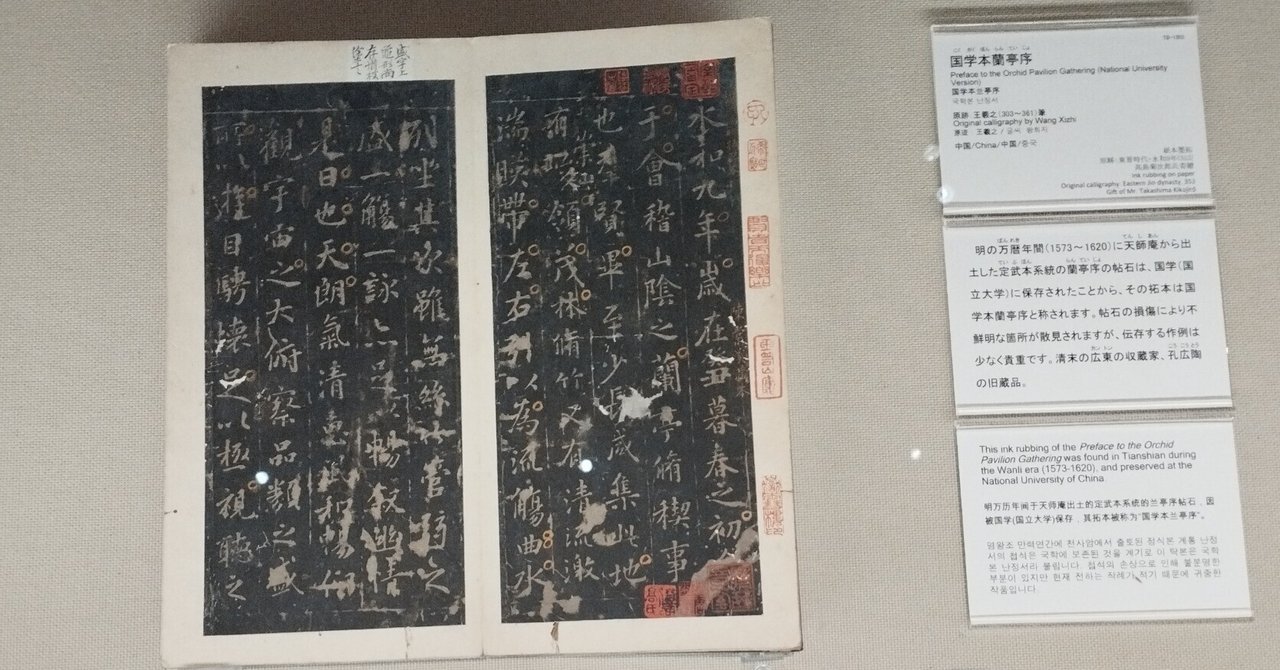 永和九年歲在癸丑暮春之初
于會稽山陰之蘭亭脩稧事
也羣賢畢至少長咸集此地
有峻領茂林脩竹又有清流激
湍暎帶左右引以為流觴曲水
列坐其次雖無絲竹管弦之
盛一觴一詠亦足以暢敘幽情
是日也天朗氣清惠風和暢仰
觀宇宙之大俯察品類之盛
所以遊目騁懷足以極視聽之
国学本蘭亭序
Preface to the Orchid Pavilion Gathering (National University
Version)
国学本兰亭序
국학본 난정서
原跡 王羲之(303～361)筆
Original calligraphy by Wang Xizhi
原迹 王羲之 / 글씨 왕희지
中国/China/中国/중국
紙本墨拓
Ink rubbing on paper
Original calligraphy: Eastern Jin dynasty, 353
Gift of Mr. Takashima Kikujirō
明の万暦年間(1573～1620)に天師庵から出
土した定武本系統の蘭亭序の帖石は、国学(国
立大学)に保存されたことから、その拓本は国
学本蘭亭序と称されます。帖石の損傷により不
鮮明な箇所が散見されますが、伝存する作例は
少なく貴重です。清末の広東の収蔵家、孔広陶
の旧蔵品。
This ink rubbing of the Preface to the Orchid
Pavilion Gathering was found in Tianshian during
the Wanli era (1573-1620), and preserved at the
National University of China.
明万历年间于天师庵出土的定武本系统的兰亭序帖石，因
被国学(国立大学)保存，其拓本被称为"国学本兰亭序"。
명왕조 만력연간에 천사암에서 출토된 정식본 계통 난정
서의 접석은 국학에 보존된 것을 계기로 이 탁본은 국학
본 난정서라 불립니다. 접석의 손상으로 인해 불분명한
부분이 있지만 현재 전하는 작례가 적기 때문에 귀중한
작품입니다.